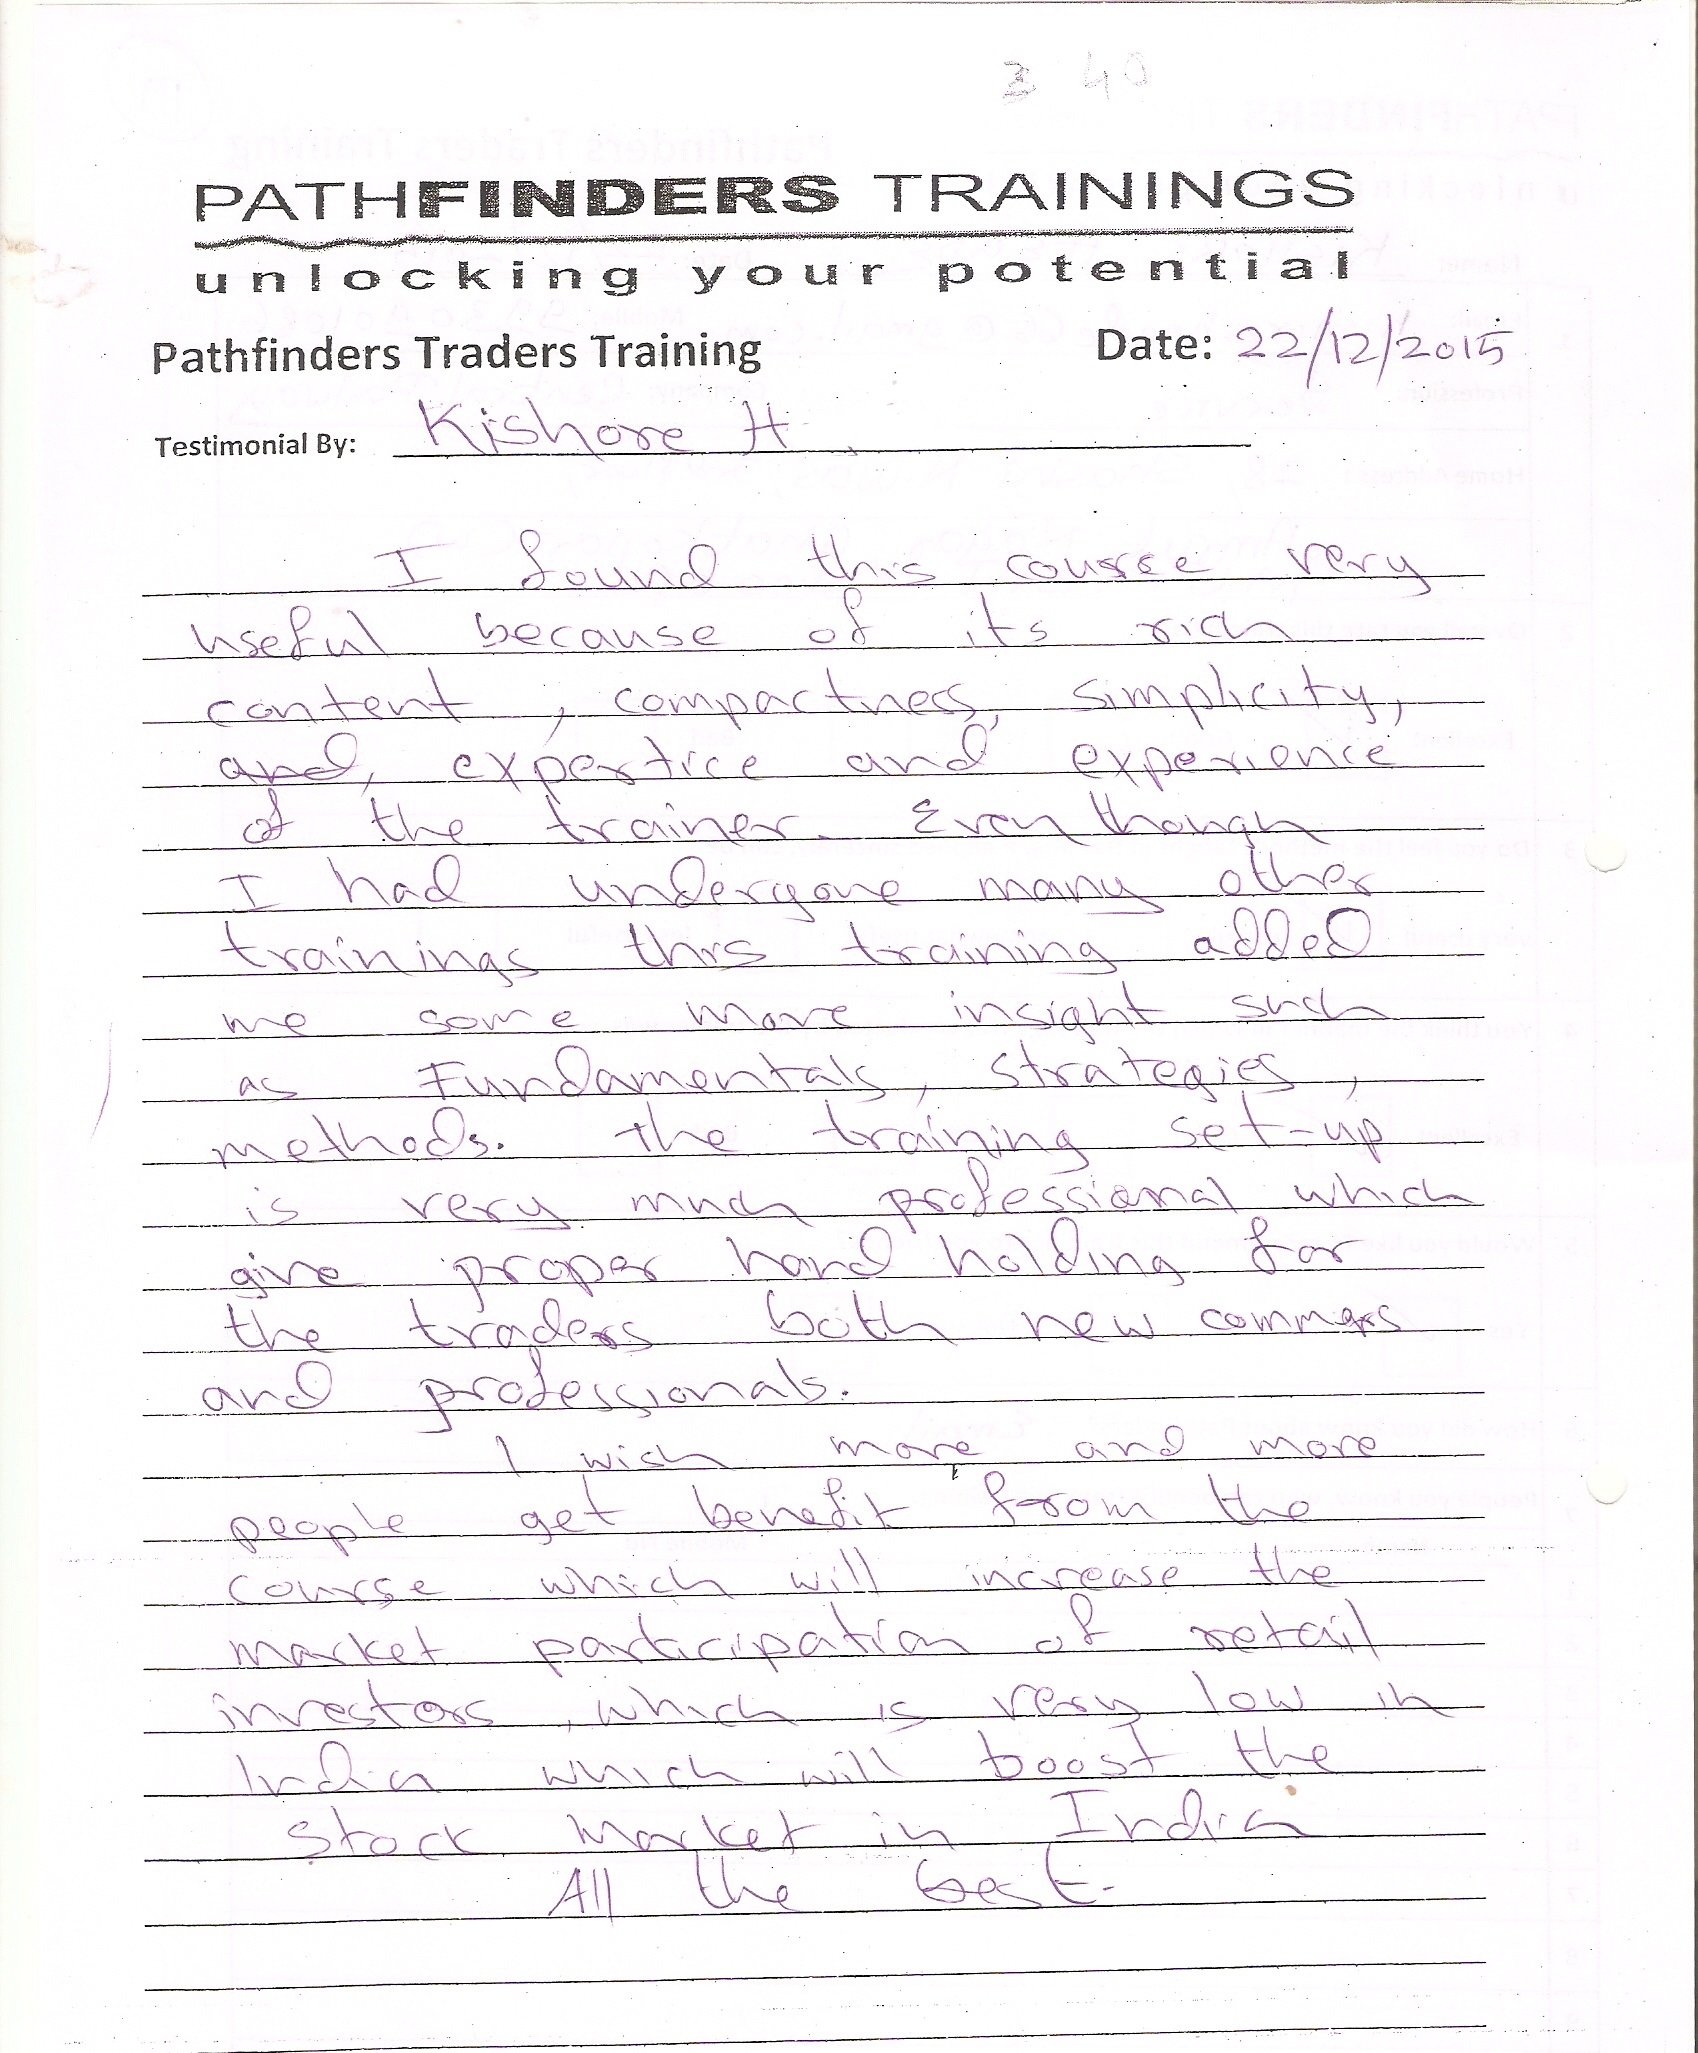 40
PATHFINDERS TRAININGS
unlocking your potential
Pathfinders Traders Training Date: 22/12/2015
Testimonial By: Kishore H.
I found this course very
useful because of its rich
content, compactness, simplicity,
and, expertice and experience
of the trainer. Even though
I had undergone many other
trainings this training added
me some more insight such
as Fundamentals, strategies,
methods. The training set-up
is very much professional which
give proper hand holding for
the traders both new commers
and professionals.
I wish more and more
people get benefit from the
course which will increase the
market participation of retail
investors, which is very low in
India which will boost the
stock market in India
All the best.